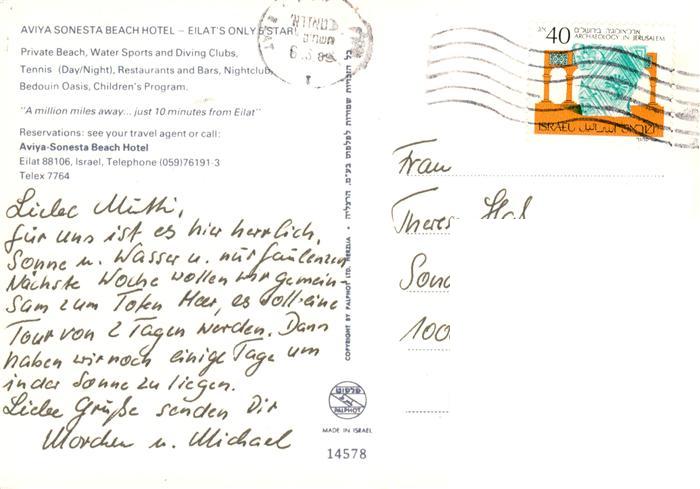 AVIYA SONESTA BEACH HOTEL – EILAT'S ONLY 5 STAR!
Private Beach, Water Sports and Diving Clubs,
Tennis (Day/Night), Restaurants and Bars, Nightclub,
Bedouin Oasis, Children's Program.
"A million miles away... just 10 minutes from Eilat"
Reservations: see your travel agent or call:
Aviya-Sonesta Beach Hotel
Eilat 88106, Israel, Telephone (059)76191-3
Telex 7764
Liebe Mutti,
für uns ist es hier herrlich,
Sonne u. Wasser u. nur faulenzen
Nächste Woche wollen wir gemein-
sam zum Toten Meer, es soll eine
Tour von 2 Tagen werden. Dann
haben wir noch einige Tage um
in der Sonne zu liegen.
Liebe Grüße senden Dir
u. Michael
כל הזכויות שמורות לפלפוט בע"מ. הרצליה • COPYRIGHT BY PALPHOT LTD. HERZLIA
פלפוט
PALPHOT
MADE IN ISRAEL
14578
40 אג
ארכיאולוגיה בירושלים
ARCHAEOLOGY IN JERUSALEM
ISRAEL اسرائيل ישראל
Frau
Theres
Sond
100